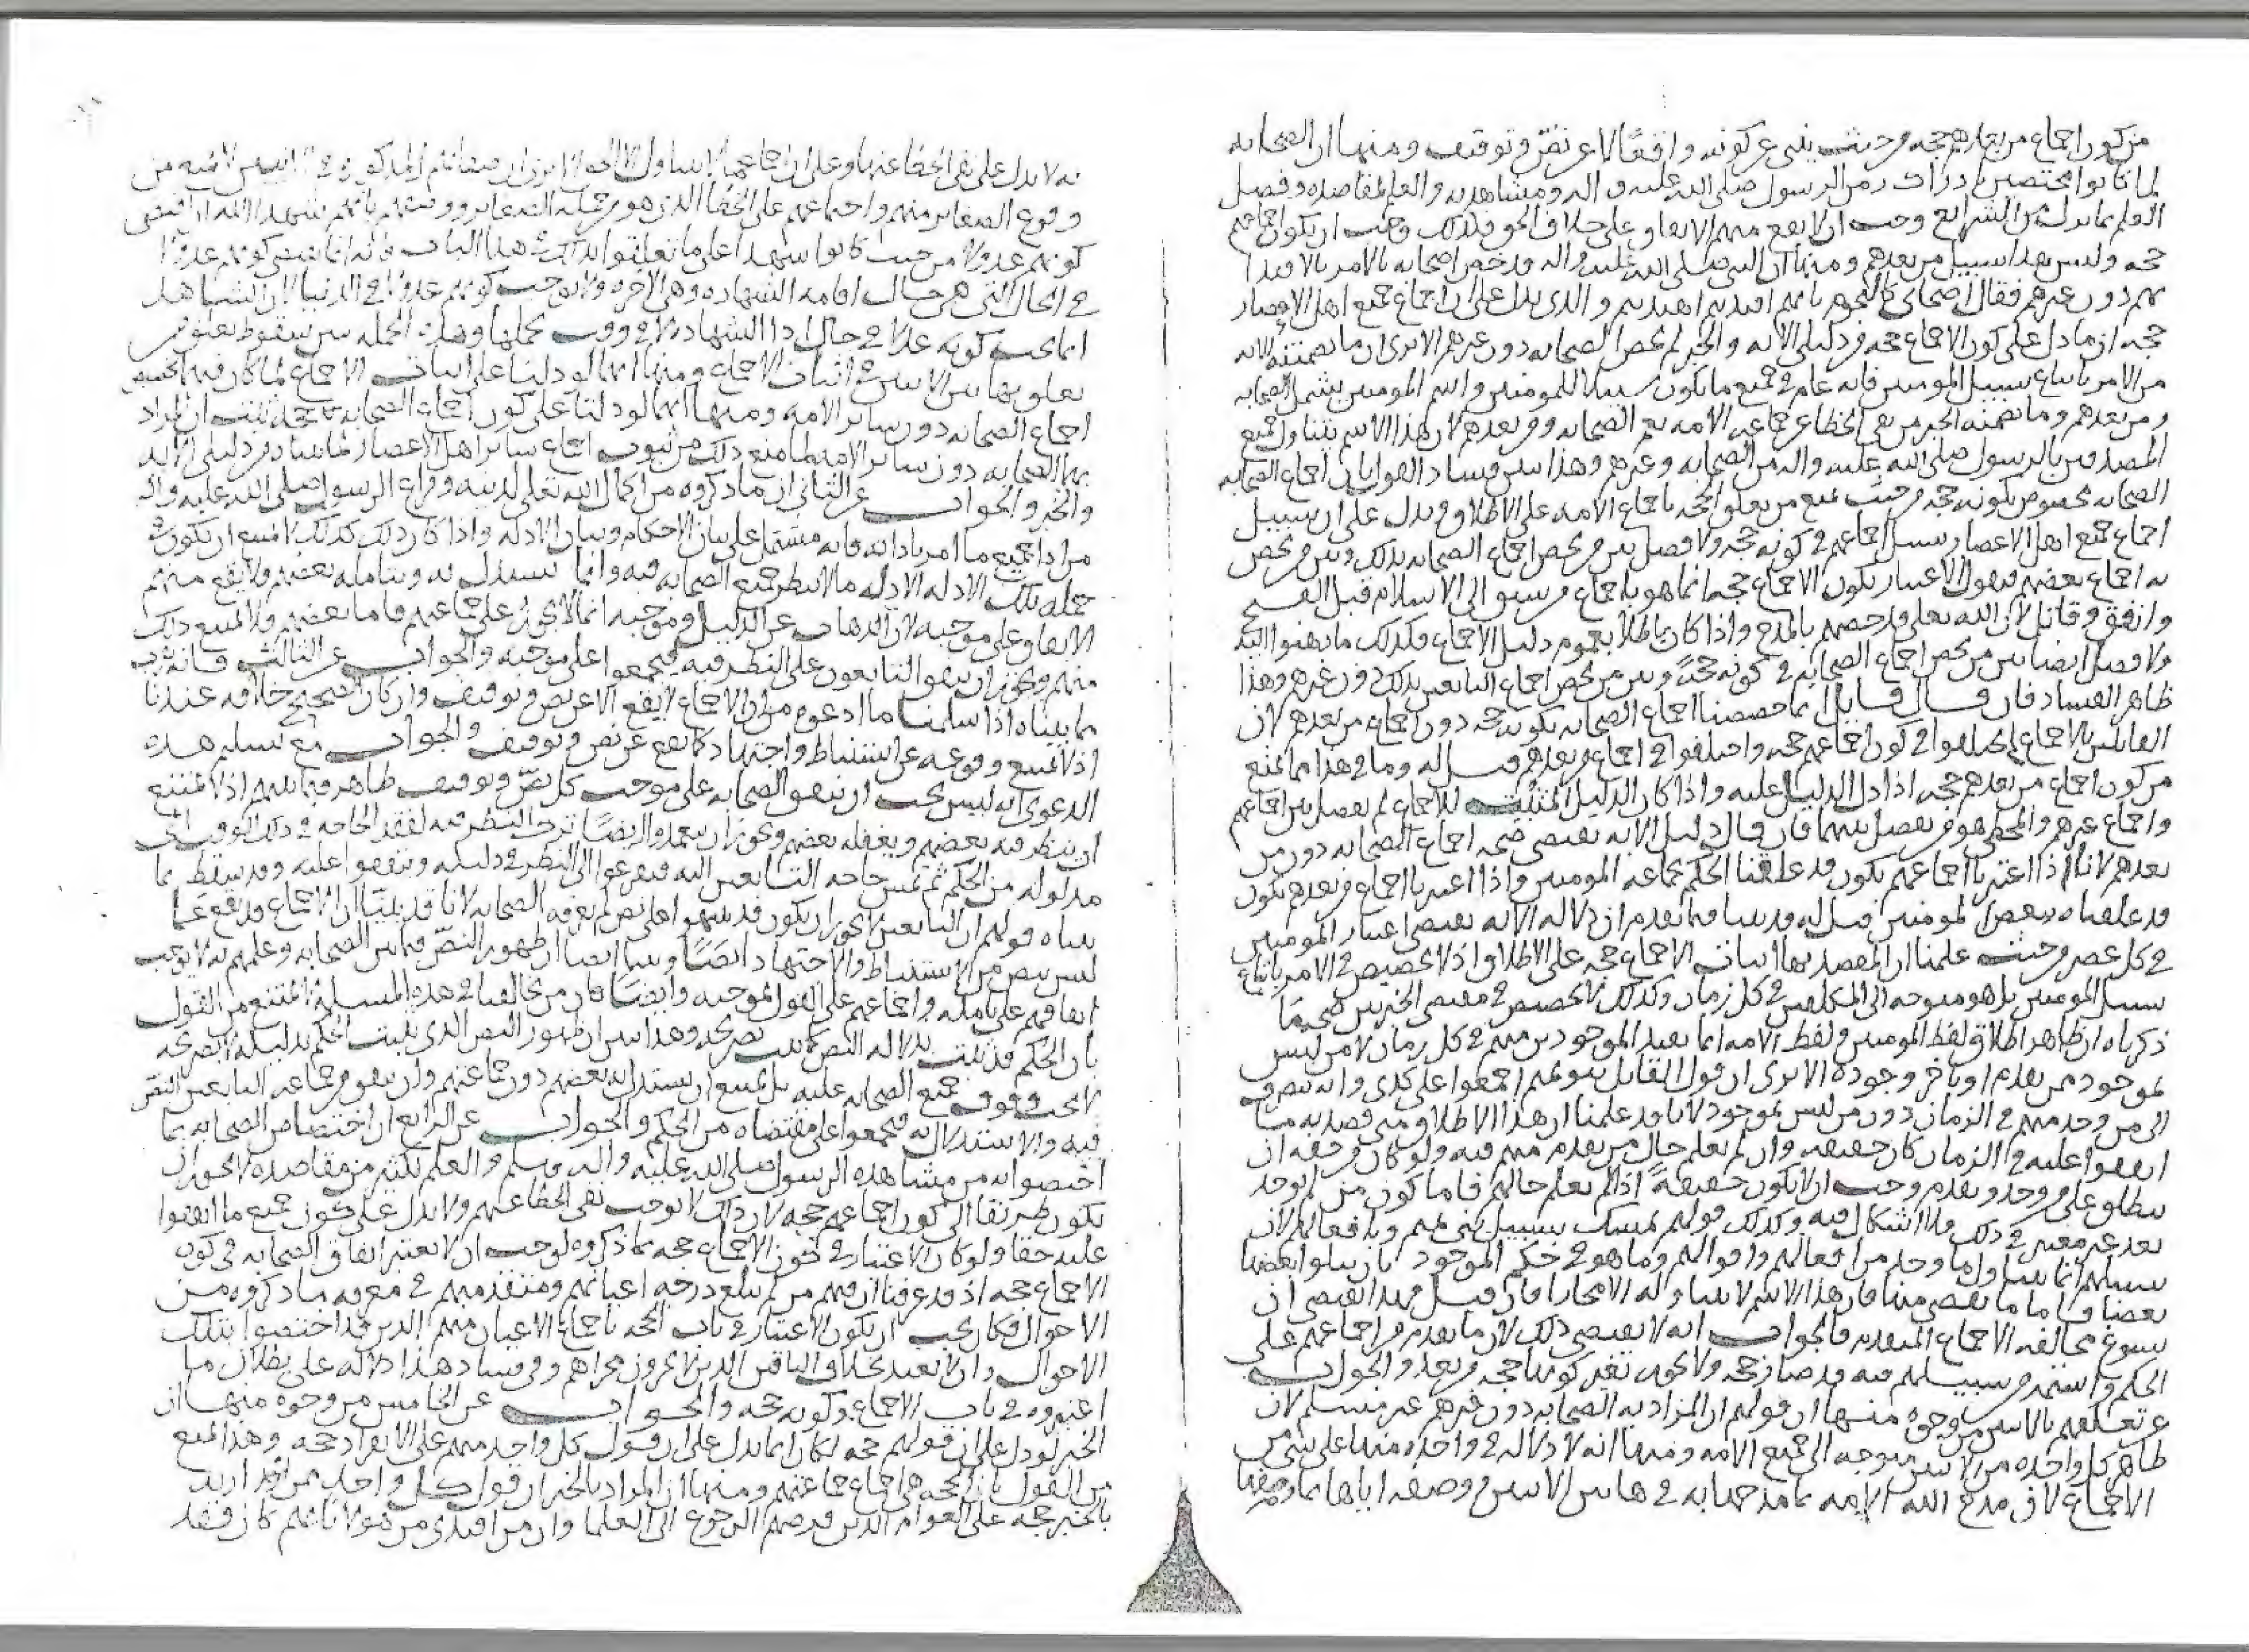 من كون اجماع من بعدهم حجه من حيث ينبى عن كونه واقعًا لا عن نصّ وتوقيف ومنها ان الصحابه
لما كانوا مختصين بادراك زمن الرسول صلى الله عليه واله ومشاهدته والعلم لمقاصده وفضل
العلم بما يدل من الشرايع وجب ان لا يقع منهم الاتفاق على خلاف الحق فلذلك وجب ان يكون اجماعهم
حجه وليس بهذا سبيل من بعدهم ومنها ان النبي صلى الله عليه واله قد خص اصحابه بالامر بالاقتدا
بهم دون غيرهم فقال اصحابي كالنجوم بايهم اقتديتم اهتديتم والذي يدل على ان اجماع جميع اهل الاعصار
حجه ان ما دل على كون الاجماع حجه من دليلي الايه والخبر لم يخص الصحابه دون غيرهم الا ترى ان ما تضمنته الايه
من الامر باتباع سبيل المومنين فانه عام في جميع ما يكون سبيلا للمومنين واسم المومنين يشمل الصحابه
ومن بعدهم وما تضمنه الخبر من نفي الخطا عن جماعه الامه يعم الصحابه ومن بعدهم لان هذا الاسم يتناول جميع
المصدقين بالرسول صلى الله عليه واله من الصحابه وغيرهم وهذا يبين فساد القول بان اجماع الصحابه
الصحابه مخصوص بكونه حجه من حيث يمنع من تعلق الحجه باجماع الامه على الاطلاق ويدل على ان سبيل
اجماع جميع اهل الاعصار سبيل اجماعهم في كونه حجه ولا فصل بين من يخص اجماع الصحابه بذلك وبين من يخص
به اجماع بعضهم فيقول الاعتبار بكون الاجماع حجه انما هو باجماع من سبق الى الاسلام قبل الفتح
وانفق وقاتل لان الله تعلى قد خصهم بالمدح واذا كان باطلا بعموم دليل الاجماع فكذلك ما ذهبوا اليه
ولا فصل ايضا بين من يخص اجماع الصحابه في كونه حجهً وبين من يخص اجماع التابعين بذلك دون غيرهم وهذا
ظاهر الفساد فان قال قايل انما خصصنا اجماع الصحابه بكونه حجه دون اجماع من بعدهم لان
القايلين بالاجماع لم يختلفوا في كون اجماعهم حجه واختلفوا في اجماع من بعدهم قيل له وما في هذا مما يمنع
من كون اجماع من بعدهم حجه اذا دل الدليل عليه واذا كان الدليل المثبت للاجماع لم يفصل بين اجماعهم
واجماع غيرهم والمخطي هو من يفصل بينهما فان قال دليل الايه يقتضي صحه اجماع الصحابه دون من
بعدهم لانا اذا اعتبرنا اجماعهم نكون قد علقنا الحكم بجماعه المومنين واذا اعتبرنا اجماع من بعدهم نكون
قد علقناه ببعض المومنين قيل له قد بينا فيما تقدم ان دلاله الايه تقتضي اعتبار المومنين
في كل عصر من حيث علمنا ان المقصد بها اثبات الاجماع حجه على الاطلاق اذ لا تخصيص في الامر باتباع
سبيل المومنين بل هو متوجه الى المكلفين في كل زمان وكذلك لا تخصيص في مقتضى الخبر يبين صحه ما
ذكرناه ان ظاهر اطلاق لفظ المومنين ولفظ الامه انما يفيد الموجودين منهم في كل زمان لا من ليس
بموجود ممن تقدم او تاخر وجوده الا ترى ان قول القايل بنو تميم اجمعوا على كذى وانه ينصرف
الى من وجد منهم في الزمان دون من ليس بموجود لانا قد علمنا ان هذا الاطلاق متى قصد به ما
اتفقوا عليه في الزمان كان حقيقه وان لم نعلم حال من تقدم منهم فيه ولو كان من حقه ان
ينطلق على من وجد وتقدم وجب ان لا يكون حقيقهً اذا لم نعلم حالهم فاما كون من لم يوجد
بعد غير معتبر في ذلك فلا اشكال فيه وكذلك قولهم تمسك بسبيل بني تميم وبافعالهم لان
سبيلهم انما يتناول ما وجد من افعالهم واقوالهم وما هو في حكم الموجود بان يتلوا بعضها
بعضا فاما ما تقضى منها فان هذا الاسم لا يتناوله الا مجازا فان قيل فهذا يقتضي ان
يسوغ مخالفه الاجماع المتقدم فالجواب انه لا يقتضي ذلك لان ما تقدم من اجماعهم على
الحكم واستمر من سبيلهم فيه قد صار حجه ولا يجوز تغير كونها حجه من بعد والجواب
عن تعلقهم بالايتين من وجوه منها ان قولهم ان المراد به الصحابه دون غيرهم غير مسلم لان
ظاهر كل واحده من الايتين متوجه الى جميع الامه ومنها انه لا دلاله في واحده منها على شي من
الاجماع لان مدح الله الامه بما مدحها به في هاتين الايتين ووصفه اياها بما وصفها
به لا يدل على نفي الخطا عنها وعلى ان اجماعها لا يتناول الا الحق
وقوع الصغاير منهم واجماعهم على الخطا الذي هو من جمله الصغاير ووصفهم بانهم شهدا الله اذا اقتضى
كونهم عدولا من حيث كانوا شهدا على ما تعلقوا بذلك في هذا الباب فانه انما يقتضي كونهم عدولا
في الحال التي هي حال اقامه الشهاده وهي الاخره ولا يوجب كونهم عدولا في الدنيا لان الشاهد
انما يجب كونه عدلا في حال ادا الشهاده لا في وقت تحملها وهذه الجمله تبين سقوط تعلق من
تعلق بهاتين الايتين في اثبات الاجماع ومنها انهما لو دلتا على اثبات الاجماع لما كان فيه تخصيص
اجماع الصحابه دون ساير الامه ومنها انهما لو دلتا على كون اجماع الصحابه حجه يثبت ان المراد
بها الصحابه دون ساير الامه لما منع ذلك من ثبوت اجماع ساير اهل الاعصار لما بيناه من دليلي الايه
والخبر والجواب عن الثاني ان ما ذكروه من اكمال الله تعلى لدينه وفراغ الرسول صلى الله عليه واله
من ادا جميع ما امر بادائه فانه مشتمل على بيان الاحكام وبيان الادله واذا كان ذلك كذلك لا يمتنع ان يكون في
جمله تلك الادله الادله ما لا ينظر جميع الصحابه فيه وانما يستدل به ويتامله بعضهم ولا يقع منهم
الاتفاق على موجبه لان الذهاب عن الدليل وموجبه انما لا يجوز على جماعتهم فاما بعضهم فلا يمتنع ذلك
منهم ويجوز ان يتفق التابعون على النظر فيه فيجمعوا على موجبه والجواب عن الثالث فانه
ما بيناه اذا سلمنا ما ادعوه من ان الاجماع لا يقع الا عن نص وتوقيف وان كان الصحيح خلافه عندنا
اذ لا يمتنع وقوعه عن استنباط واجتهاد كما يقع عن نصّ وتوقيف والجواب مع تسليم هذه
الدعوى انه ليس يجب ان يتفق الصحابه على موجب كل نصّ وتوقيف ظاهر فيما بينهم اذ لا يمتنع
ان ينظر فيه بعضهم ويغفله بعضهم ويجوز ان يتعمدوا ايضًا ترك النظر فيه لفقد الحاجه في ذلك الوقت الى
مدلوله من الحكم ثم تمس حاجه التابعين اليه فيفزعوا الى النظر في دليله ويتفقوا عليه وقد سقط بما
بيناه قولهم ان التابعين لا يجوز ان يكون قد تنبهوا على نص لم يعرفه الصحابه لانا قد بينّا ان الاجماع قد يقع عما
ليس بنص من الاستنباط والاجتهاد ايضًا وبينا ايضا ان ظهور النصّ فيما بين الصحابه وعلمهم به لا يوجب
اتفاقهم على تامله واجماعهم على القول بموجبه وايضًا فان من يخالفنا في هذه المسله لا يمتنع من القول
بان الحكم قد يثبت بدلاله النص كما يثبت بصريحه وهذا يبين ان ظهور النص الذي يثبت الحكم بدليله لا بصريحه
لا يجب وقوف جميع الصحابه عليه بل يمتنع ان يستدل به بعضهم دون جماعتهم وان يتفق من جماعه التابعين النظر
فيه والاستدلال به فيجمعوا على مقتضاه من الحكم والجواب عن الرابع ان اختصاص الصحابه بما
اختصوا به من مشاهده الرسول صلى الله عليه واله وسلم والعلم بكثير من مقاصده لا يجوز ان
يكون طريقا الى كون اجماعهم حجه لان ذلك لا يوجب نفي الخطا عنهم ولا يدل على كون جميع ما اتفقوا
عليه حقا ولو كان الاعتبار في كون الاجماع حجه بما ذكروه لوجب ان لا يعتبر اتفاق الصحابه في كون
الاجماع حجه اذ قد عرفنا ان فيهم من لم يبلغ درجه اعيانهم ومتقدميهم في معرفه ما ذكروه من
الاحوال فكان يجب ان يكون الاعتبار في باب الحجه باجماع الاعيان منهم الذين قد اختصوا بتلك
الاحوال وان لا يعتد بخلاف الباقين الذين لا يجرون مجراهم وفي فساد هذا دلاله على بطلان ما
اعتبروه في باب الاجماع وكونه حجه والجواب عن الخامس من وجوه منها ان
الخبر لو دل على ان قولهم حجه لكان انما يدل على ان قول كل واحد منهم على الانفراد حجه وهذا يمنع
من القول بان الحجه هي اجماع جماعتهم ومنها ان المراد بالخبر ان قول كل واحد ممن اريد
بالخبر حجه على العوام الذين فرضهم الرجوع الى العلما وان من اقتدى من هولا بايهم كان فقد